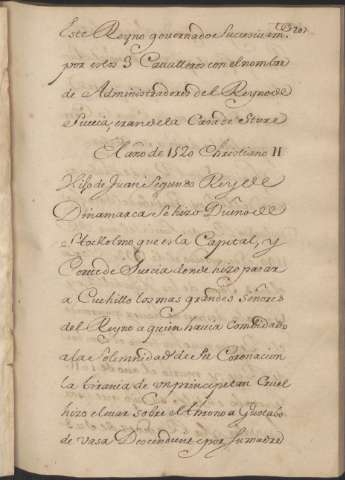 Este Reyno governador Sucesivam.
por estos 3 Cavalleros con el nombre
de Administradores del Reyno de
Suecia, eran de la Casa de Sture
El año de 1520 Christiano II
Hijo de Juan Segundo Rey de
Dinamarca Se hizo Dueño de
Stockolmo que es la Capital, y
Corte de Suecia donde hizo pasar
a Cuchillo los mas grandes Señores
del Reyno a quien havia combidado
a la Solemnidad de Su Coronacion
la tirania de un principe tan Cruel
hizo elevar sobre el throno a Gustabo
de Vasa Descendiente por Su madre